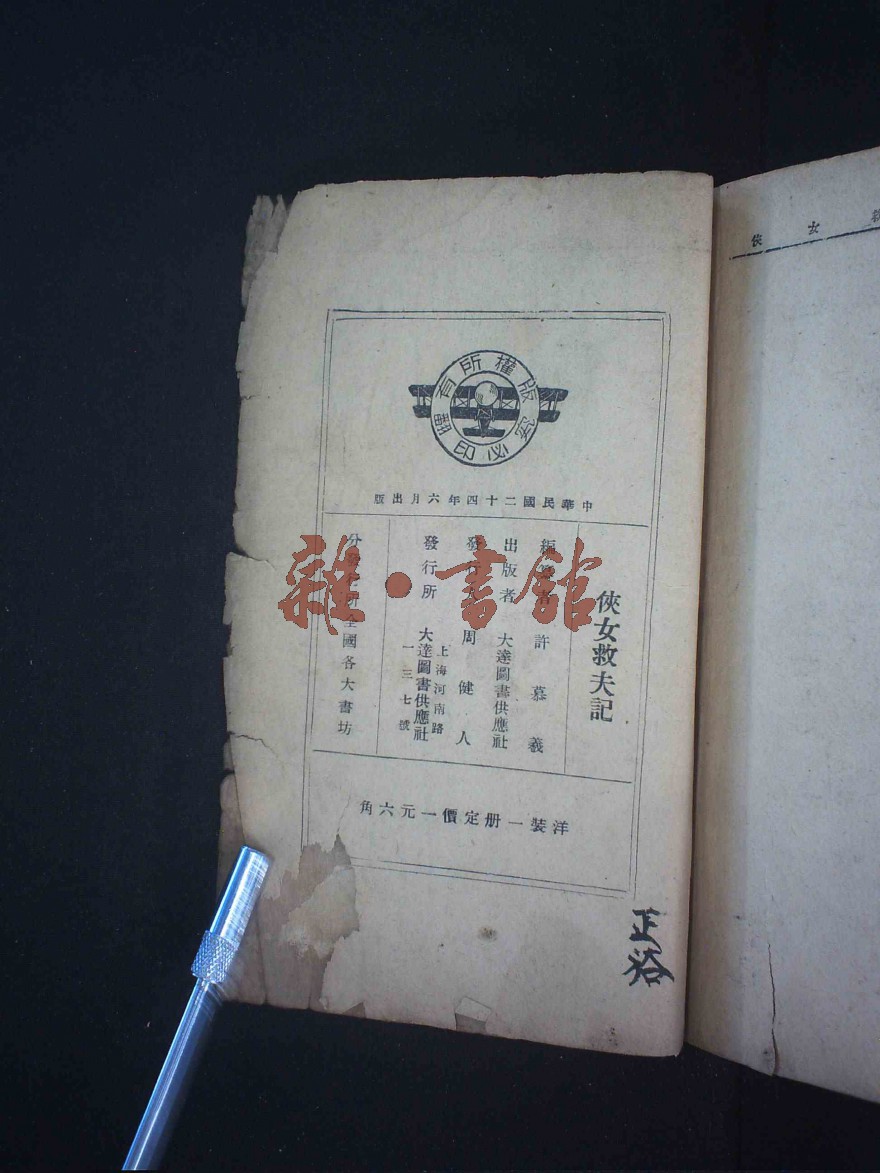 版權所有
翻印必究
中華民國二十四年六月出版
俠女救夫記
編者 許慕羲
出版者 大達圖書供應社
發行人 周健人
發行所 大達圖書供應社
上海河南路
一三七號
分發行所 全國各大書坊
洋裝一册定價一元六角
正裕
俠女
雜·書館